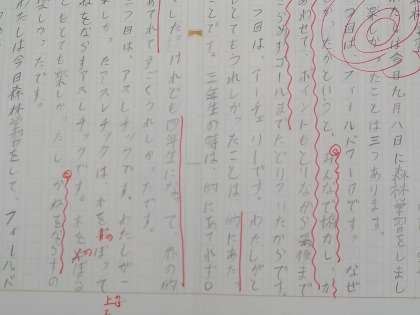 たしは今日九月八日に森林学習をしまし
楽しかったことは三つあります。
つ目は、フィールドワークです。なぜ
か、たかというと、みんなで協力し、か
あわせて、ポイントもとりながら最後まで
きらめずゴールまでたどりついたからです。
つ目は、アーチェリーです。わたしがと
てもうれしかったことは、的にあた
ことです。三年生の時は、的にあたれず0
した。けれども四年生になって、木の的
あてれてすごくうれしかったです。
三つ目は、アスレチックです。わたしが一
しか、たアスレチックは、木をのぼって
ねをならすアスレチックです。木をのぼる
してとても楽しか、たし、かねをならすの
楽しかったです。
わたしは今日森林学習をして、フィールド